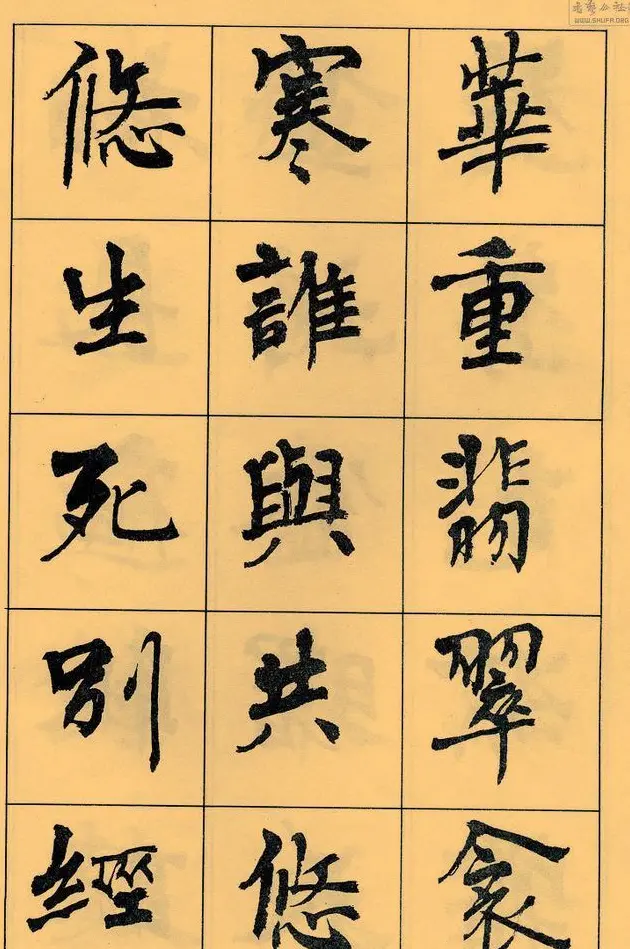 華重翡翠衾
寒誰與共悠
悠生死別經
WWW.SHUFA.ORG